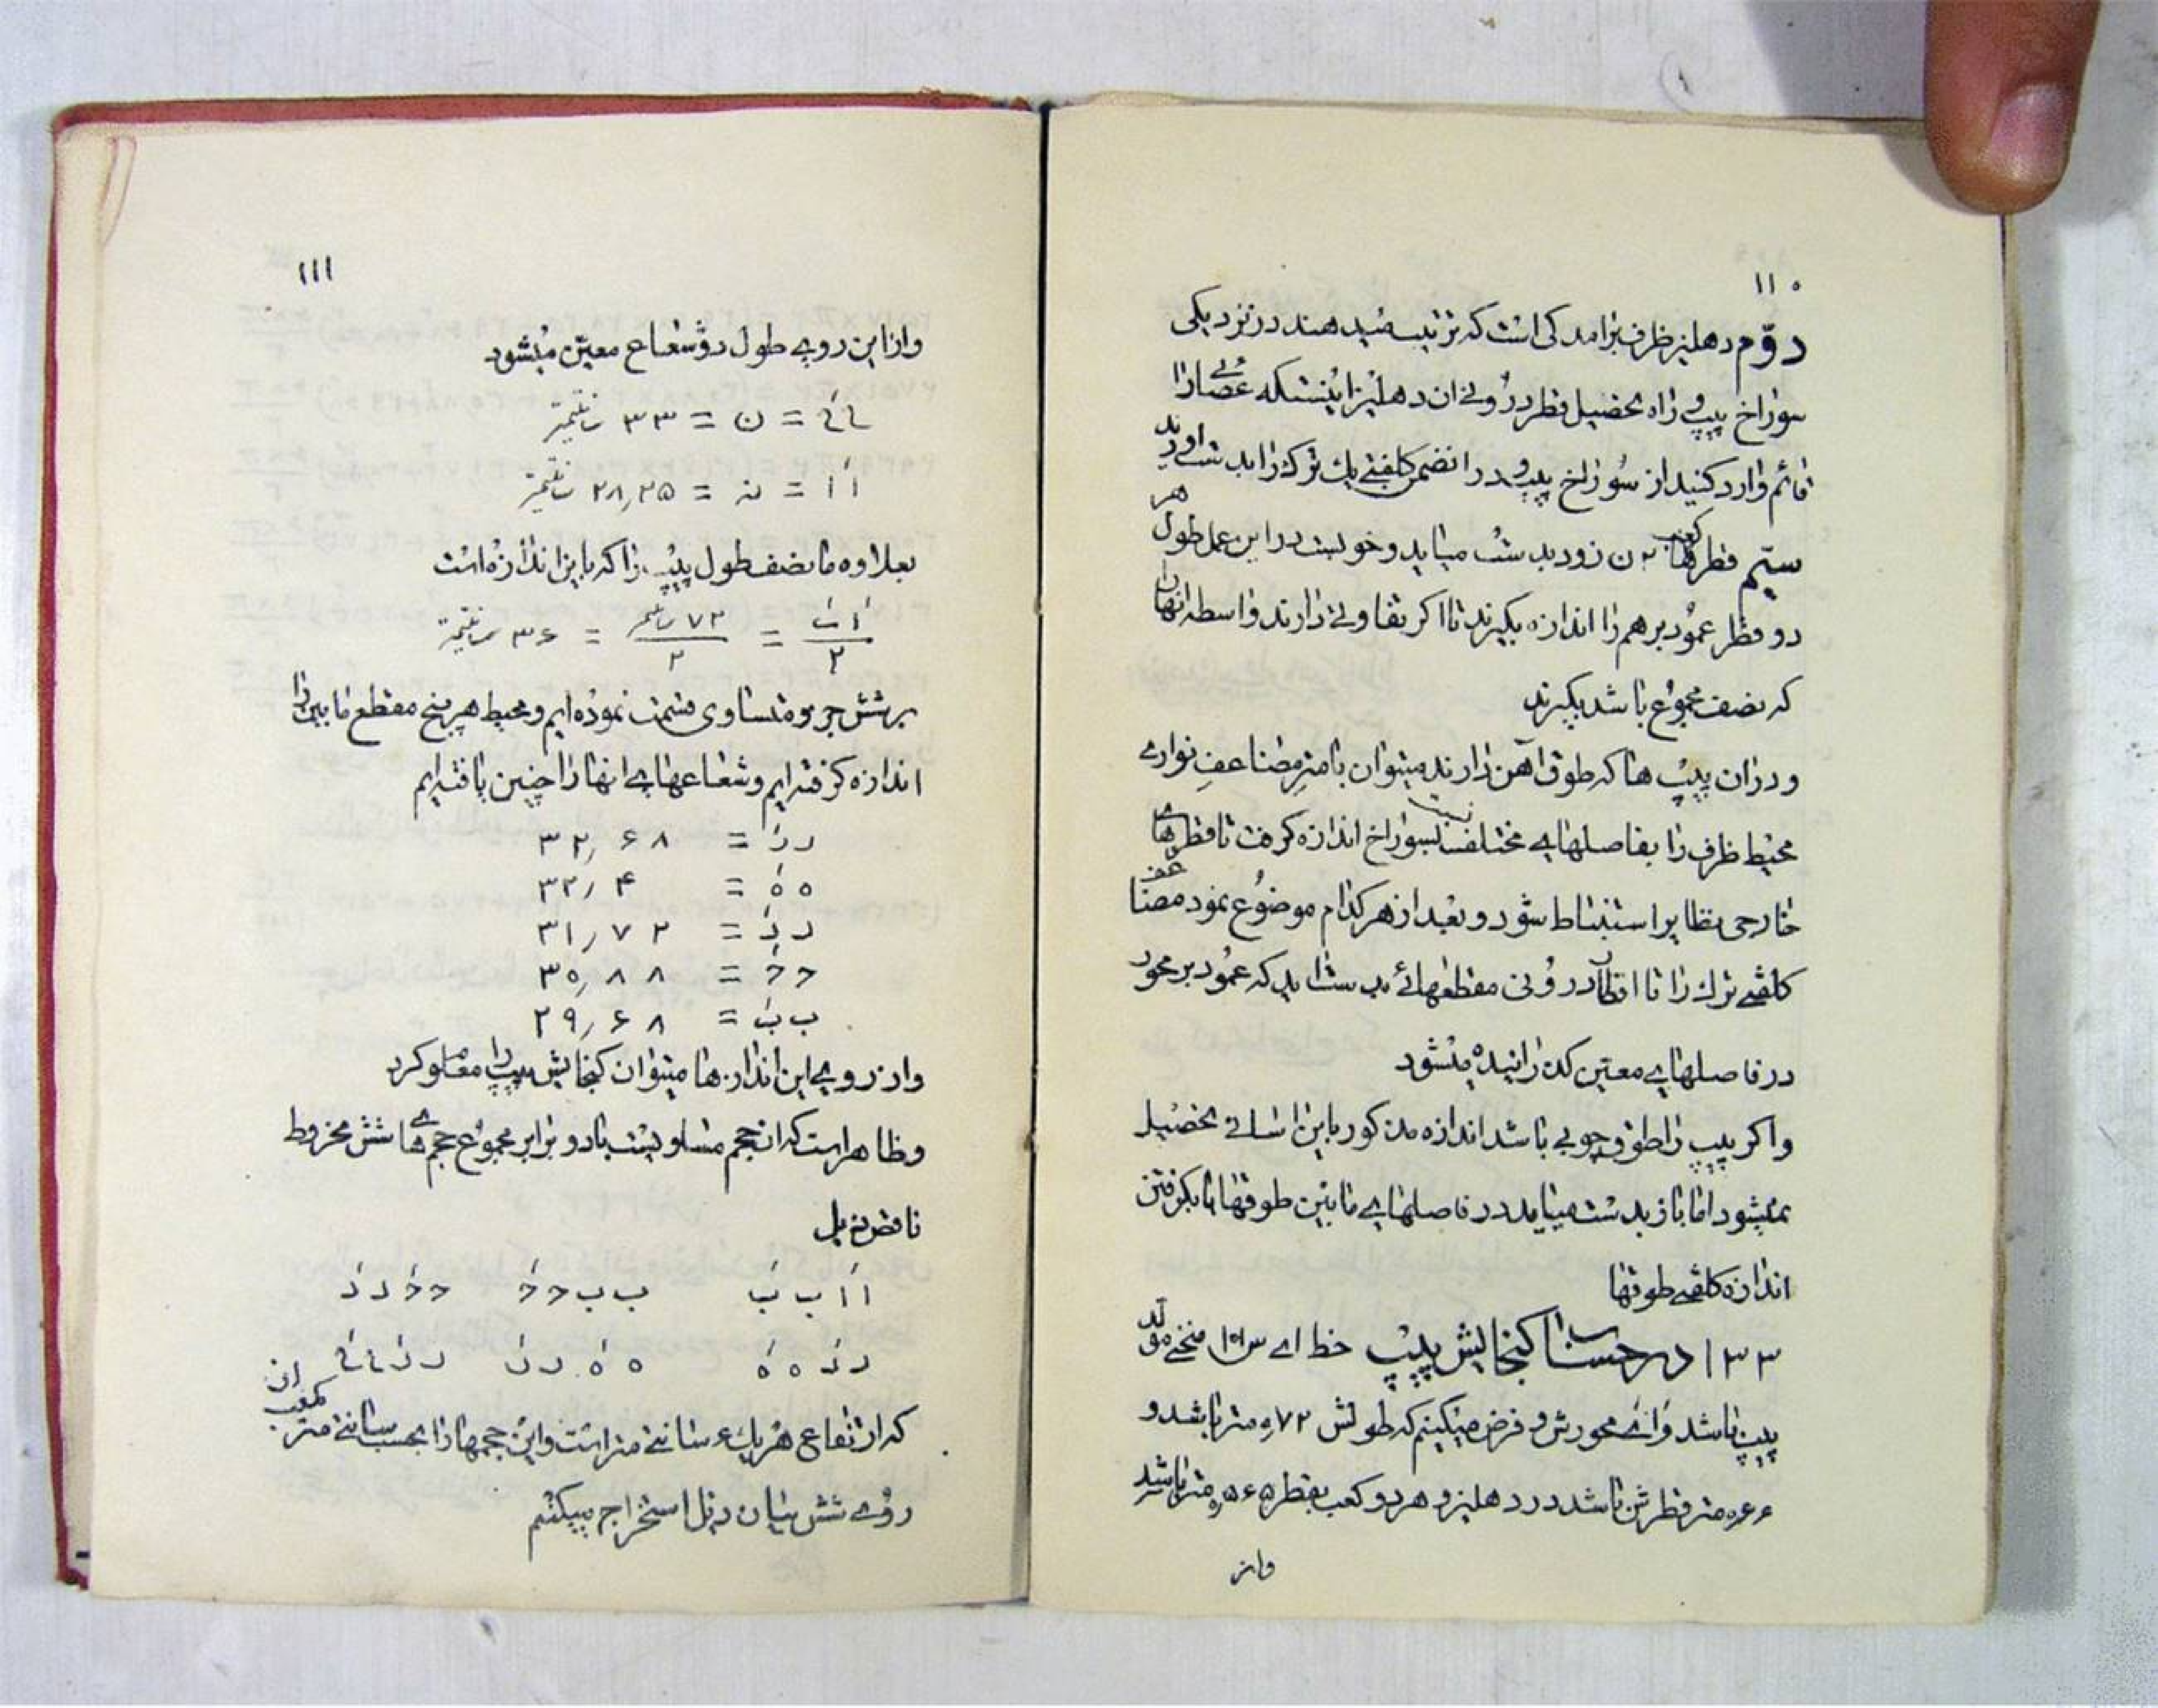 ۱۱۰
دوّم دهلیز ظرف برامدکی است که ترتیب میدهند در نزدیکی
سوراخ پیپ و راه تحصیل قطر درونی ان دهلیز اینستکه عصائی را
قائم وارد کنید از سوراخ پیپ و در انضمن کلفتی یک ترک را بدست اورید
سیّم قطر کعبها ۲ن زود بدست میاید و خوبست در این عمل طول هر
دو قطر عمود بر هم را اندازه بکیرند تا اکر تفاوتی دارند واسطه انها را
که نصف مجموع باشد بکیرند
و در ان پیپ ها که طوق آهن دارند میتوان با متر مضاعف نواری
محیط ظرف را بفاصلهای مختلف نسبت بسوراخ اندازه کرفت تا قطرهای
خارجی نظایر استنباط شود و بعد از هر کدام موضوع نمود مضاعف
کلفتی ترک را تا اقطار درونی مقطعهائی بدست اید که عمود بر محور
در فاصلهای معین کذرانیده میشود
و اکر پیپ را طوق چوبی باشد اندازه مذکور باین اسانی تحصیل
نمیشود اما باز بدست میاید در فاصلهای مابین طوقها یا بکرفتن
اندازه کلفتی طوقها
۱۳۳ در حساب کنجایش پیپ خط ای س ا منحنی مولد
پیپ باشد و اَیَ محورش و فرض میکینم که طولش ۰٫۷۲ متر باشد و
۰٫۶۶ متر قطرش باشد در دهلیز و هر دو کعب بقطر ۰٫۵۶۵ متر باشد
واز
۱۱۱
واز این روی طول دو شعاع معین میشود
= ن = ۳۳ سانتیمتر
ااَ = نَ = ۲۸٫۲۵ سانتیمتر
بعلاوه ما نصف طول پیپ را که باین اندازه است
= ۷۲ سانتیمتر / ۲ = ۳۶ سانتیمتر
برشش جزو متساوی قسمت نموده ایم و محیط هر پنج مقطع مابین را
اندازه کرفته ایم و شعاعهای انها را چنین یافته ایم
ررَ = ۳۲٫۶۸
ه هَ = ۳۲٫۴
ددَ = ۳۱٫۷۲
ححَ = ۳۰٫۸۸
ب بَ = ۲۹٫۶۸
واز روی این اندازه ها میتوان کنجایش پیپ را معلوم کرد
و ظاهر است که انحجم متساویست با دو برابر مجموع حجم های شش مخروط
ناقص ذیل
ااَ ب بَ ب بَ ححَ ححَ ددَ
ددَ ه هَ ه هَ ررَ
که ارتفاع هریک ۶ سانتی متر است و این حجمها را بحسب سانتی متر مکعب از
روی شش بیان ذیل استخراج میکنیم